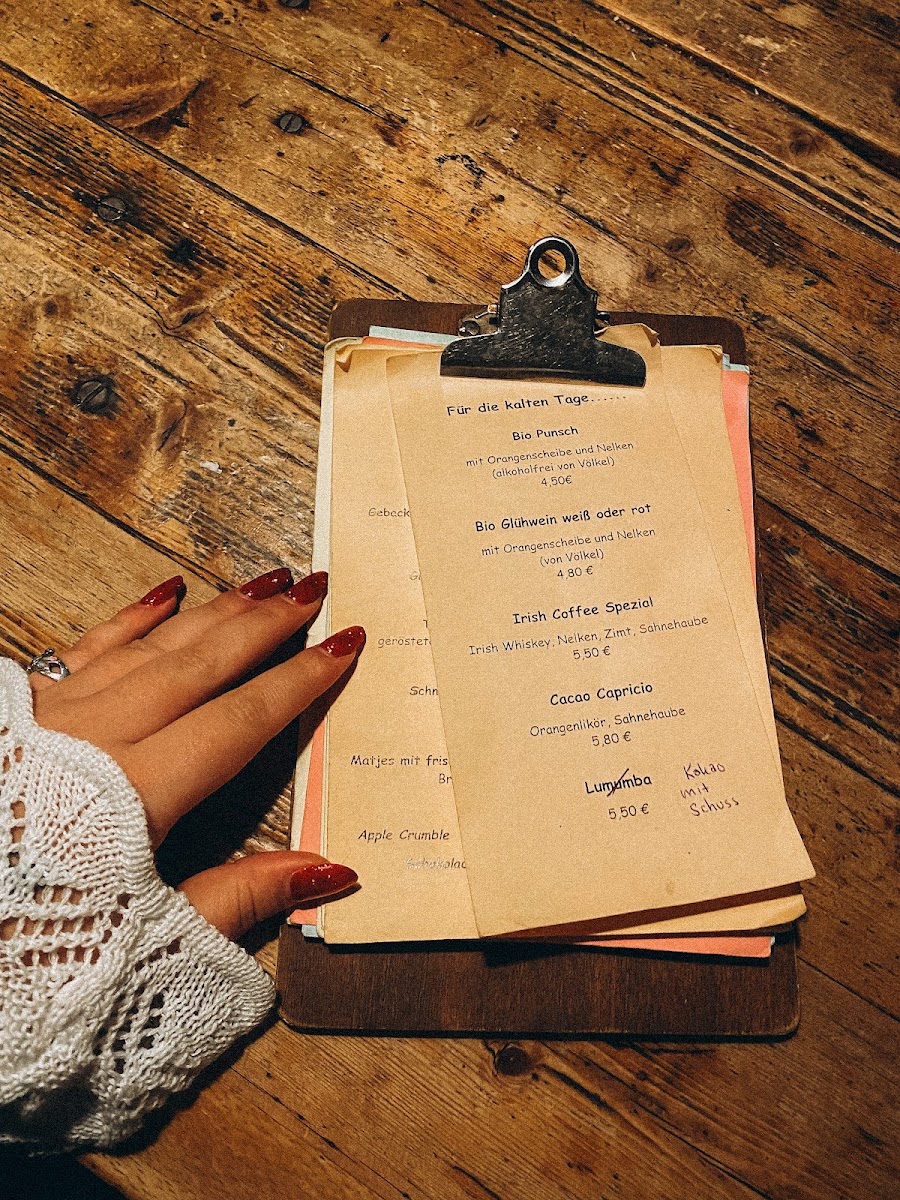 Für die kalten Tage......
Bio Punsch
mit Orangenscheibe und Nelken
(alkoholfrei von Völkel)
4,50€
Bio Glühwein weiß oder rot
mit Orangenscheibe und Nelken
(von Völkel)
4,80 €
Irish Coffee Spezial
Irish Whiskey, Nelken, Zimt, Sahnehaube
5,50 €
Cacao Capricio
Orangenlikör, Sahnehaube
5,80 €
Lumumba
5,50 €
Kakao
mit
Schuss
Geback
geröstete
Schn
Matjes mit fris
Br
Apple Crumble